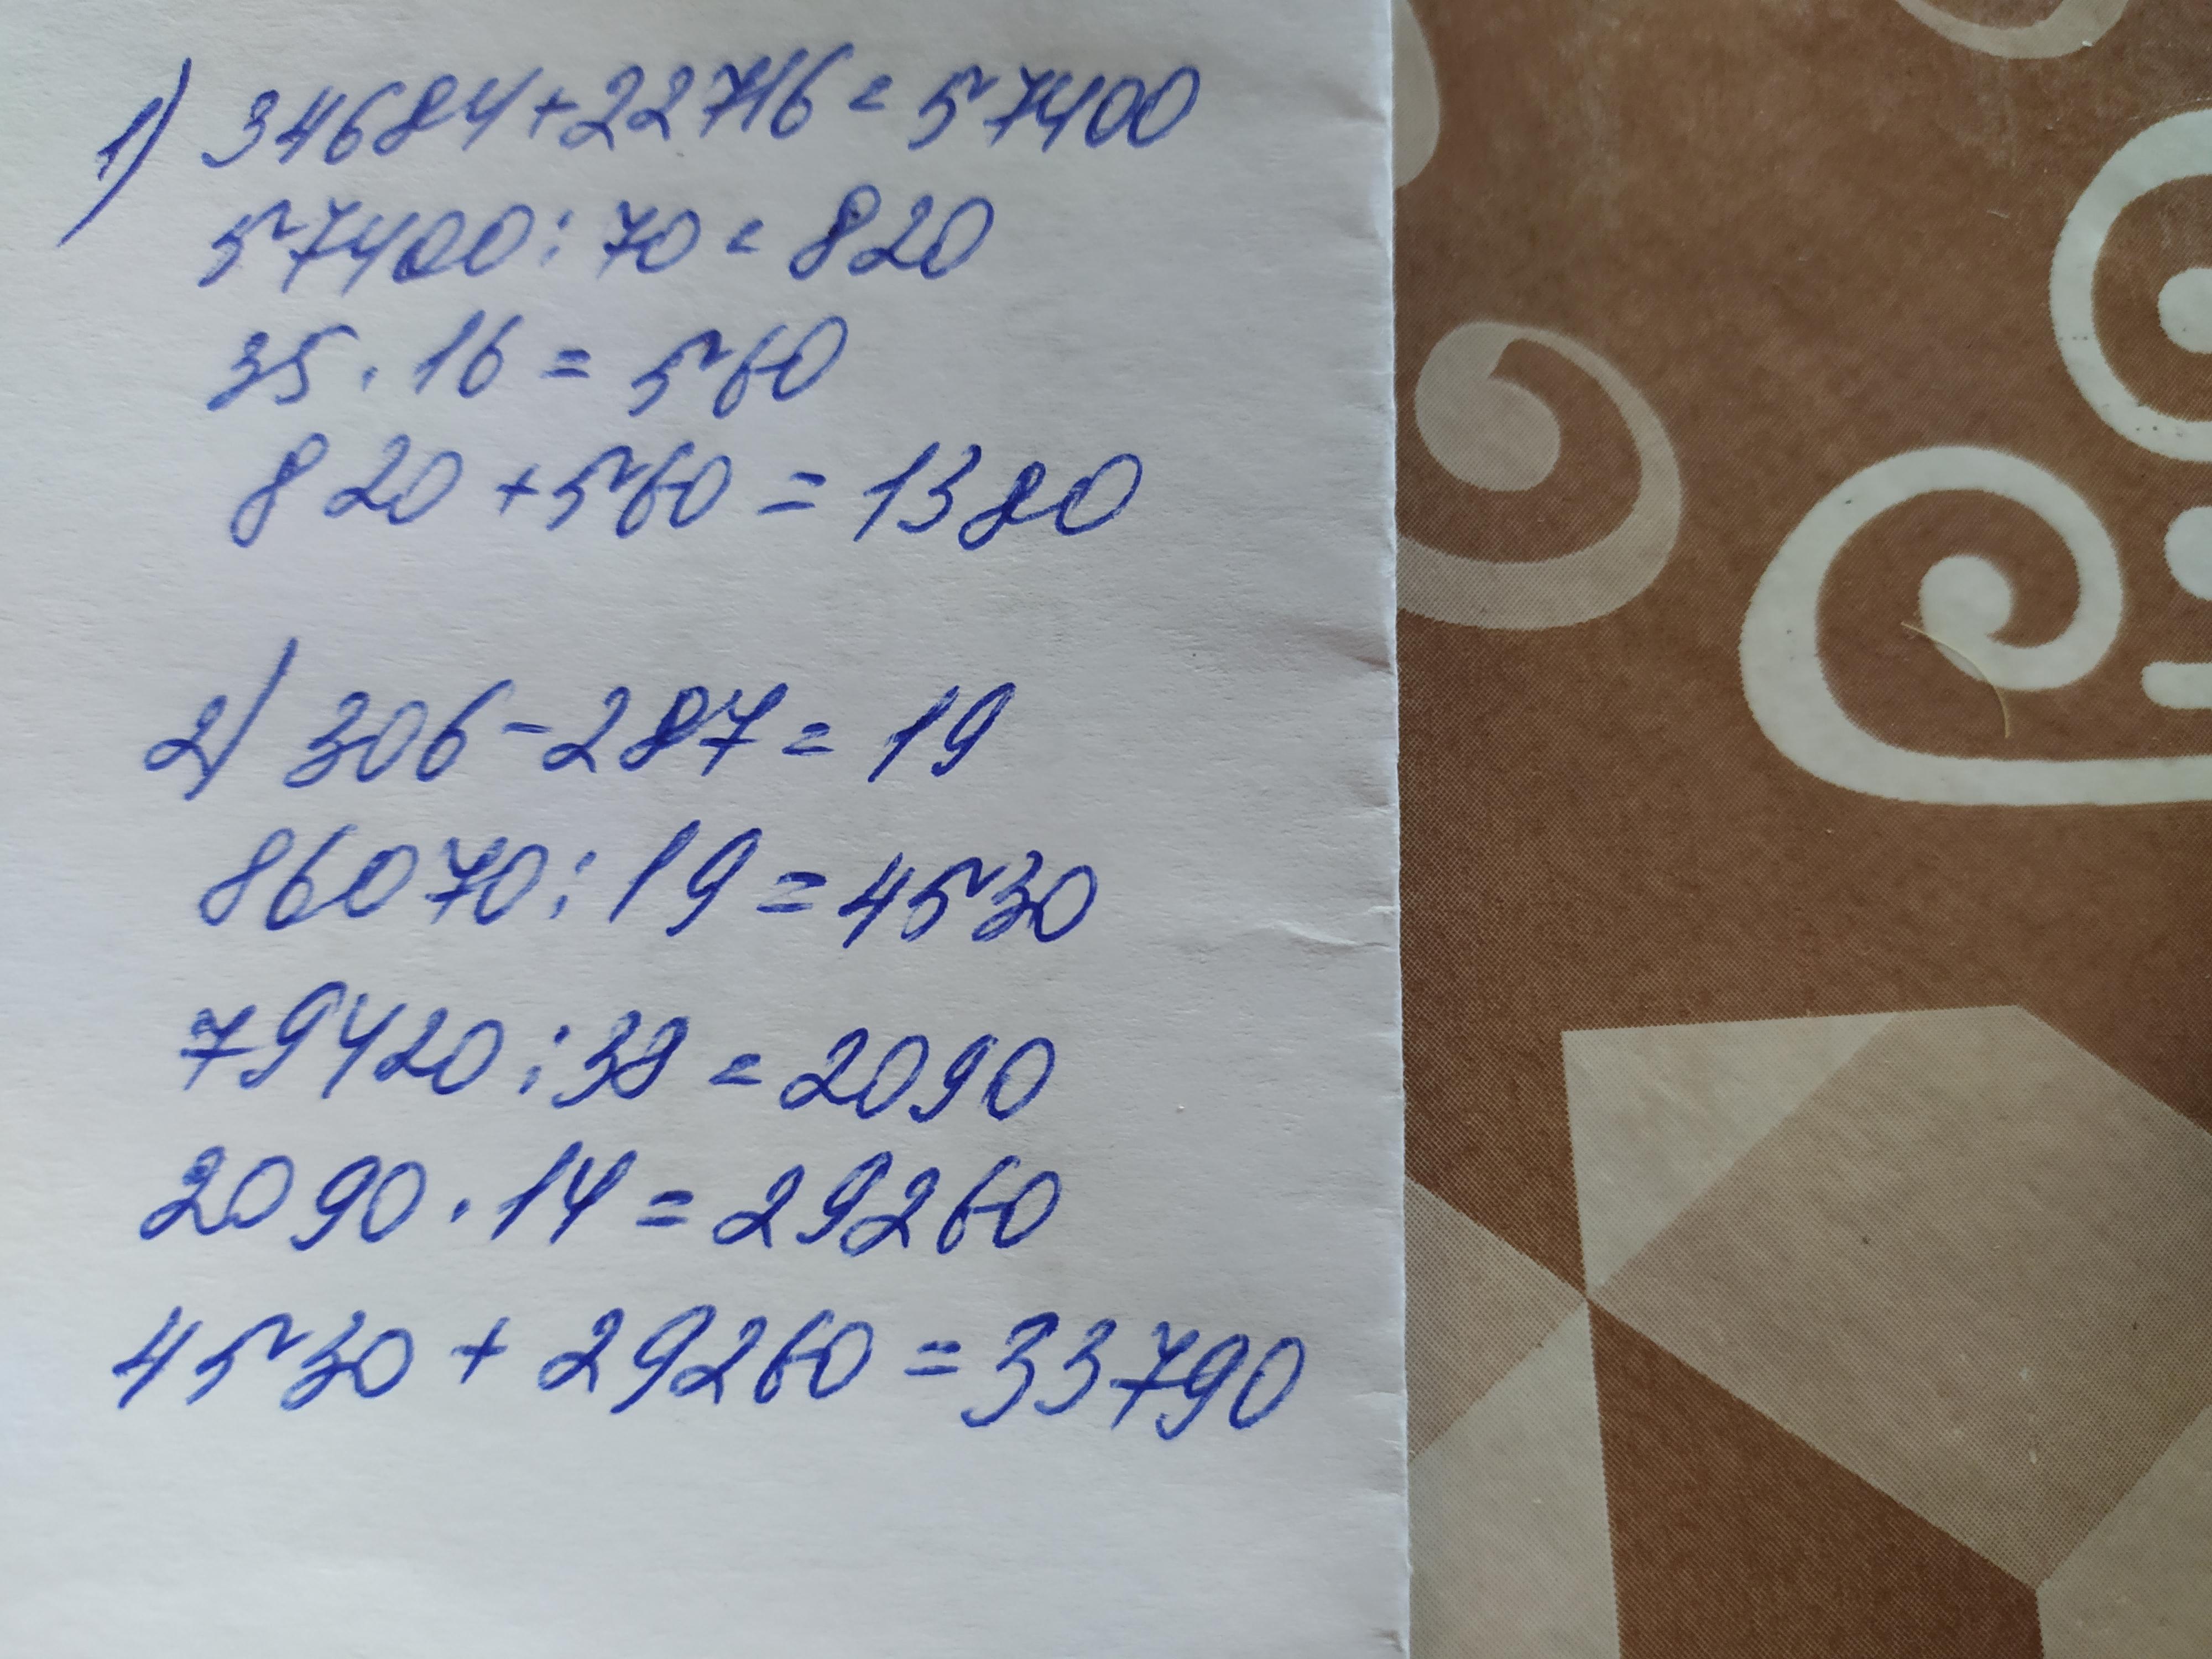 1) 34684+22716=57400
57400:70=820
35·16=560
820+560=1380
2) 306-287=19
86070:19=4530
79420:38=2090
2090·14=29260
4530+29260=33790